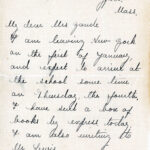 Mass
My dear Mrs Gaude
I am leaving New York
on the first of January
and expect to arrive at
the school some time
on Thursday the fourth.
I have sent a box of
books by express today
& am also writing to
Mr Lewis